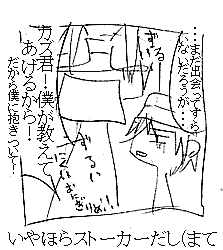 …まだ出会ってすら
いないだろうが
ずるい
カズ君！僕が教えて
あげるから！
だから僕に抱きついて！
ずるい
いやほらストーカーだし(まて